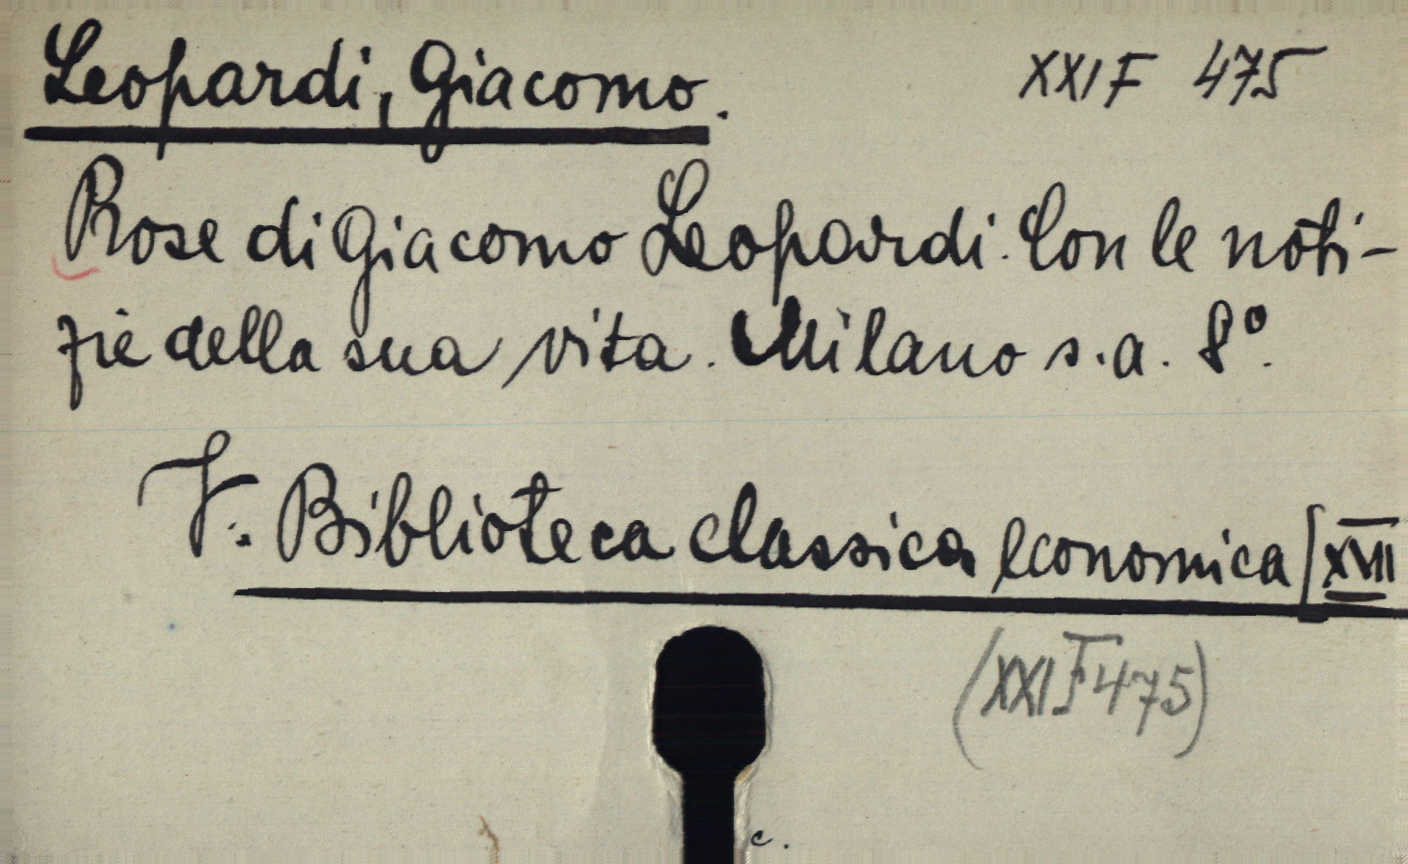 Leopardi, Giacomo.
XXI F 475
Prose di Giacomo Leopardi. Con le noti-
zie della sua vita. Milano s.a. 8º.
V. Biblioteca classica economica [XVII
(XXI F 475)
c.